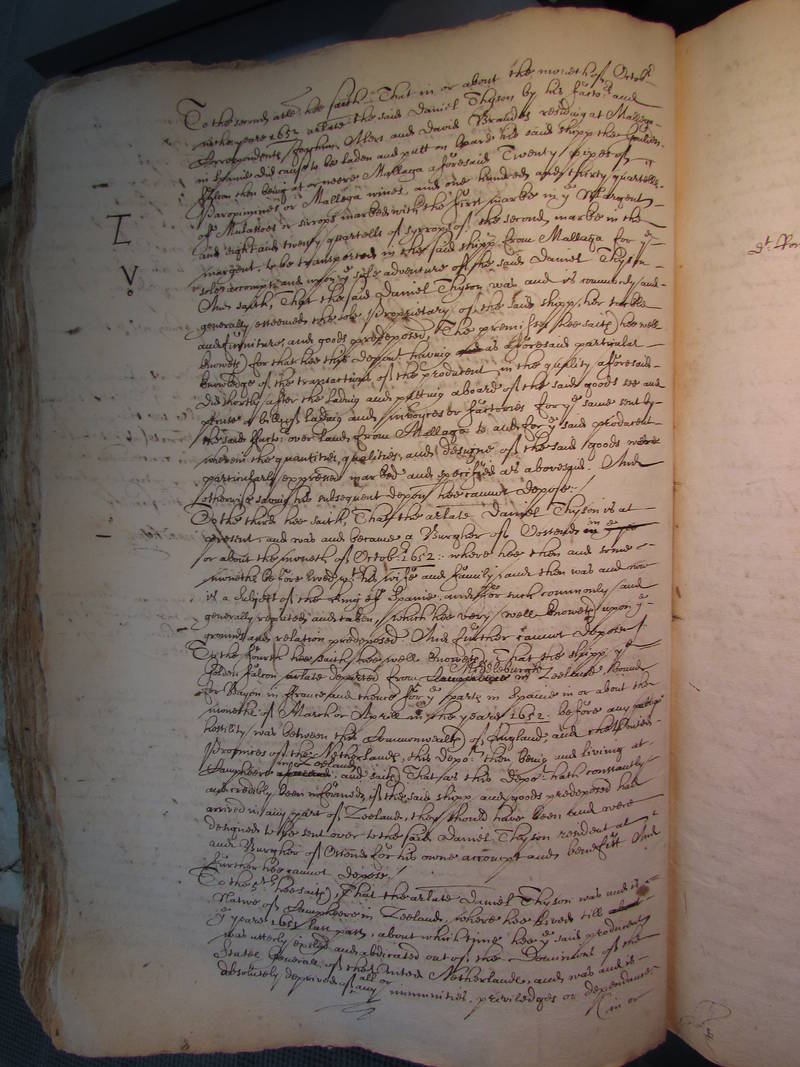 To the second arle hee saith That in or about the moneth of Octob.r
in the yeare 1652 arlate the said Daniel Thyson by his factors and
Correspondents Joachim Alers and David Brandes residing at Mallaga
in Spaine did cause to be laden and putt on board the said shipp the Goulden
Falcon then being at or neere Mallaga aforesaid Twenty pipes of
Paropimines or Mallaga wines, and one hundred and thirty quartells
of Mulasses or sirrops marked with the first marke in ye Margent,
and eight and twenty quartells of syrropps of the second marke in the
margent, to be transported in the said shipp from Mallaga for ye
soles accompt, and upon ye sole adventure of the said Daniel Thyson
And saith, That the said Daniel Thyson was and is commonly and
generally esteemed the sole Proprietary of the said shipp, her tackle
and furniture, and goods predeposed, The premisses (hee saith) he well
knoweth for that hee this depont having as aforesaid particular
knowledge of the transactions of the producent in the quality aforesaid
did shortly after the lading and putting aboard of the said goods see and
peruse a bill of lading and invoyces or factories for ye same sent by
the said factors over land from Mallaga to and for ye said producent
wherein the quantities, qualities, and designe of the said goods were
particularly expressed marked and specified as abovesaid. And
otherwise saving his subsequent depon hee cannot depose./
To the third hee saith, That the arlate Daniel Thyson is at
present, and was and became a Burgher of Oostende in ye
or about the moneth of Octob.r 1652: where hee then and some
moneths before lived wth his wife and family, and then was and now
is a subject of the King of Spaine, and for such commonly and
generally reputed and taken, which hee very well knoweth upon ye
grounds and relation predeposed And further cannot depose./
To the fourth hee saith, hee well knoweth That the shipp ye
Golden Falcon arlate departed from Middleburgh in Zeeland bound
for Bayon in France and thence for ye parts in Spaine in or about the
moneths of March or Aprill in the yeare 1652. before any
hostility was between this Commonwealth of England, and the
Provinces of the Netherlands, this depot then being and living at
Camphere in Zeeland, and saith That as this depot hath constantly
and credibly been informed, if the said shipp and goods predeposed had
arrived in any part of Zeeland, they should have been and were
designed to be sent over to the said Daniel Thyson resident at
and Burgher of Ostend for his owne accompt and benefitt And
further hee cannot depose./
To the 5th hee saith, That the arlate Daniel Thyson was and is a
Native of Camphere in Zeeland, where hee lived till
ye yeare 1651 last past, about which time hee ye said producent
was utterly exiled and abdicated out of the Dominions of the
States Generall of the United Netherlands, and was and is
absolutely deprived of all or any immunities, priviledges or dependance
in or